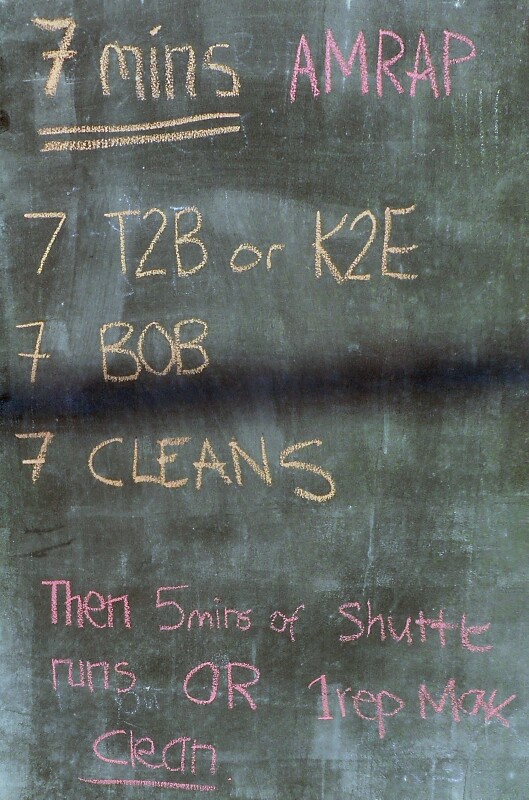 7 mins AMRAP
7 T2B or K2E
7 BOB
7 CLEANS
Then 5mins of Shuttle
runs OR 1rep Max
Clean